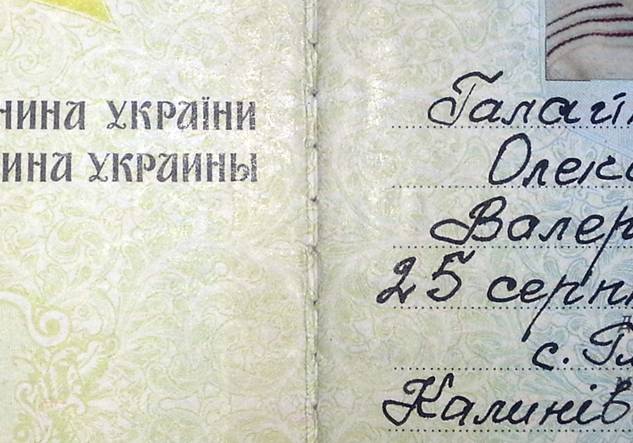 нина україни
ина украины
Галагі
Олекс
Валер
25 серпн
с. Гл
Калинів